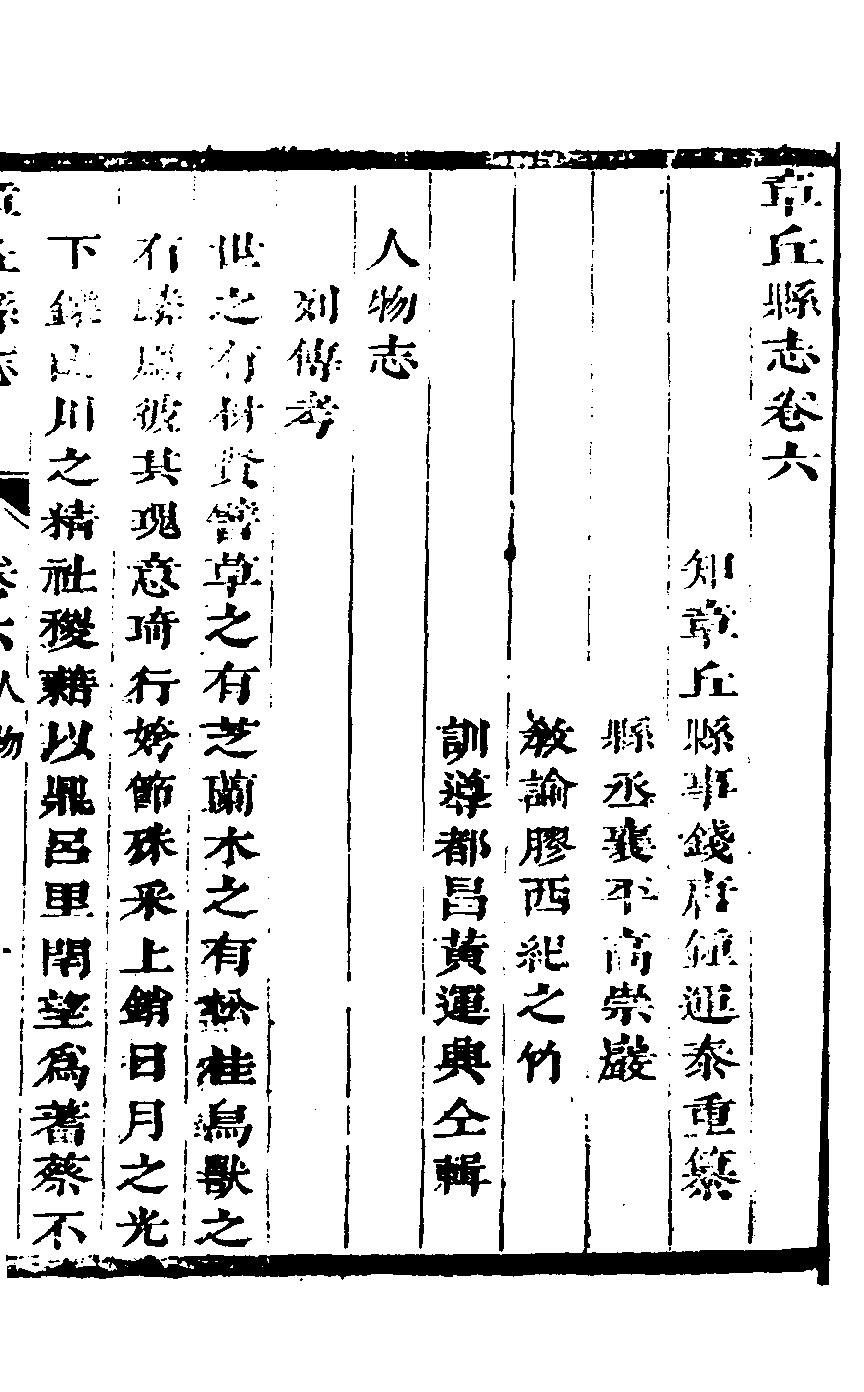 章丘縣志卷六
知章丘縣事錢唐鍾運泰重纂
縣丞襄平高崇巖
敎諭膠西紀之竹
訓導都昌黃運興仝輯
人物志
列傳考
世之有材賢譬草之有芝蘭木之有松桂鳥獸之
有麟鳳彼其瑰意琦行姱節殊采上銷日月之光
下鑠山川之精社稷藉以鼎呂里閈望為蓍蔡不
章丘縣志 卷六人物 一